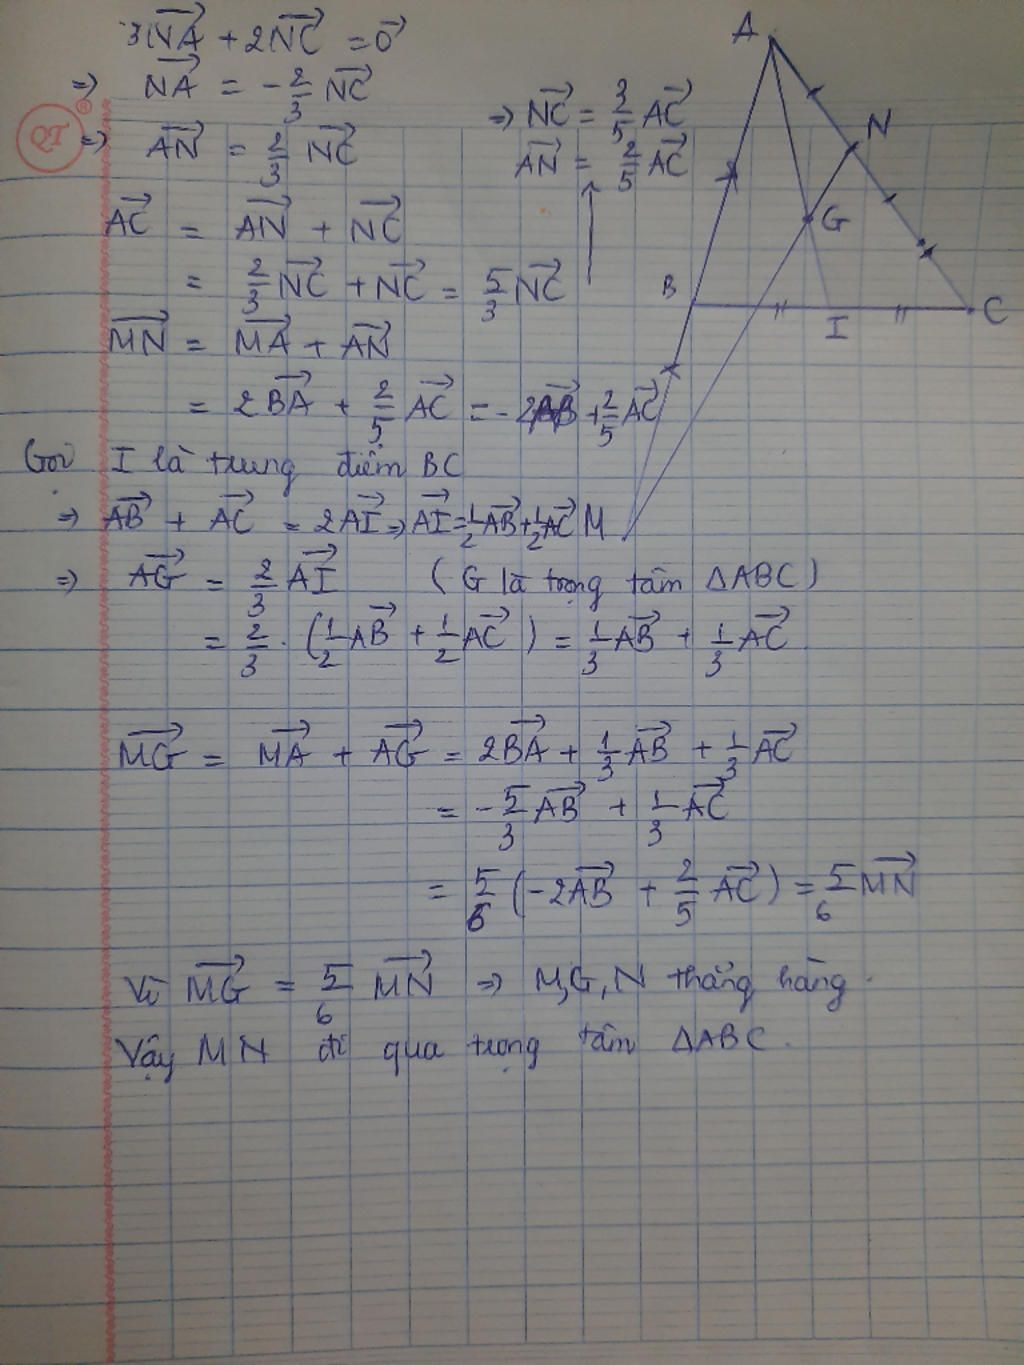 3NA⃗ + 2NC⃗ = 0⃗
⇒ NA⃗ = -2/3 NC⃗
⇒ AN⃗ = 2/3 NC⃗
⇒ NC⃗ = 3/5 AC⃗
AN⃗ = 2/5 AC⃗
AC⃗ = AN⃗ + NC⃗
= 2/3 NC⃗ + NC⃗ = 5/3 NC⃗
MN⃗ = MA⃗ + AN⃗
= 2BA⃗ + 2/5 AC⃗ = -2AB⃗ + 2/5 AC⃗
Gọi I là trung điểm BC
⇒ AB⃗ + AC⃗ = 2AI⃗ ⇒ AI⃗ = 1/2 AB⃗ + 1/2 AC⃗
⇒ AG⃗ = 2/3 AI⃗ (G là trọng tâm ΔABC)
= 2/3 . (1/2 AB⃗ + 1/2 AC⃗) = 1/3 AB⃗ + 1/3 AC⃗
MG⃗ = MA⃗ + AG⃗ = 2BA⃗ + 1/3 AB⃗ + 1/3 AC⃗
= -5/3 AB⃗ + 1/3 AC⃗
= 5/6 (-2AB⃗ + 2/5 AC⃗) = 5/6 MN⃗
Vì MG⃗ = 5/6 MN⃗ ⇒ M,G,N thẳng hàng.
Vậy MN đi qua trọng tâm ΔABC.
A
N
G
B
I
C
M
QT